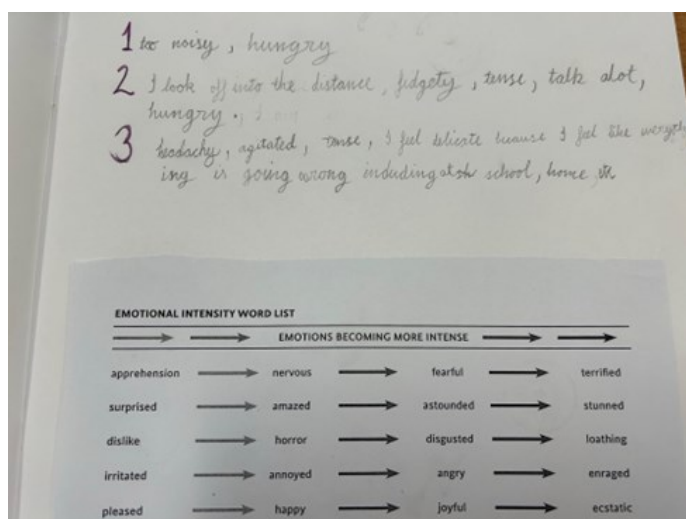 1 too noisy, hungry
2 I look off into the distance, fidgety, tense, talk alot,
hungry.
3 headachy, agitated, tense, I feel delicate because I feel like everyth
ing is going wrong including at school, home
EMOTIONAL INTENSITY WORD LIST
EMOTIONS BECOMING MORE INTENSE
apprehension nervous fearful terrified
surprised amazed astounded stunned
dislike horror disgusted loathing
irritated annoyed angry enraged
pleased happy joyful ecstatic